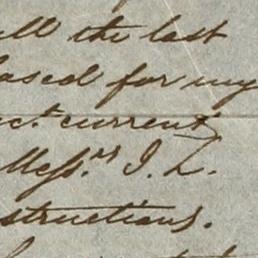 all the last
ased for my
ct. current
Mess.rs I. L.
structions.